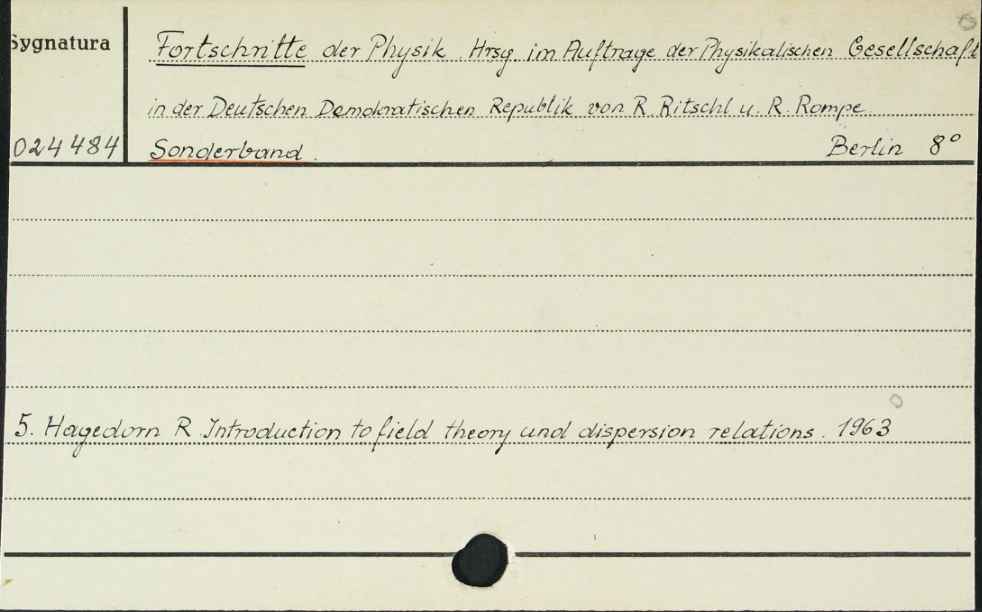 Sygnatura
Fortschritte der Physik. Hrsg. im Auftrage der Physikalischen Gesellschaft
in der Deutschen Demokratischen Republik von R. Ritschl u. R. Rompe
024484 Sonderband. Berlin 8°
5. Hagedorn R Introduction to field theory und dispersion relations. 1963